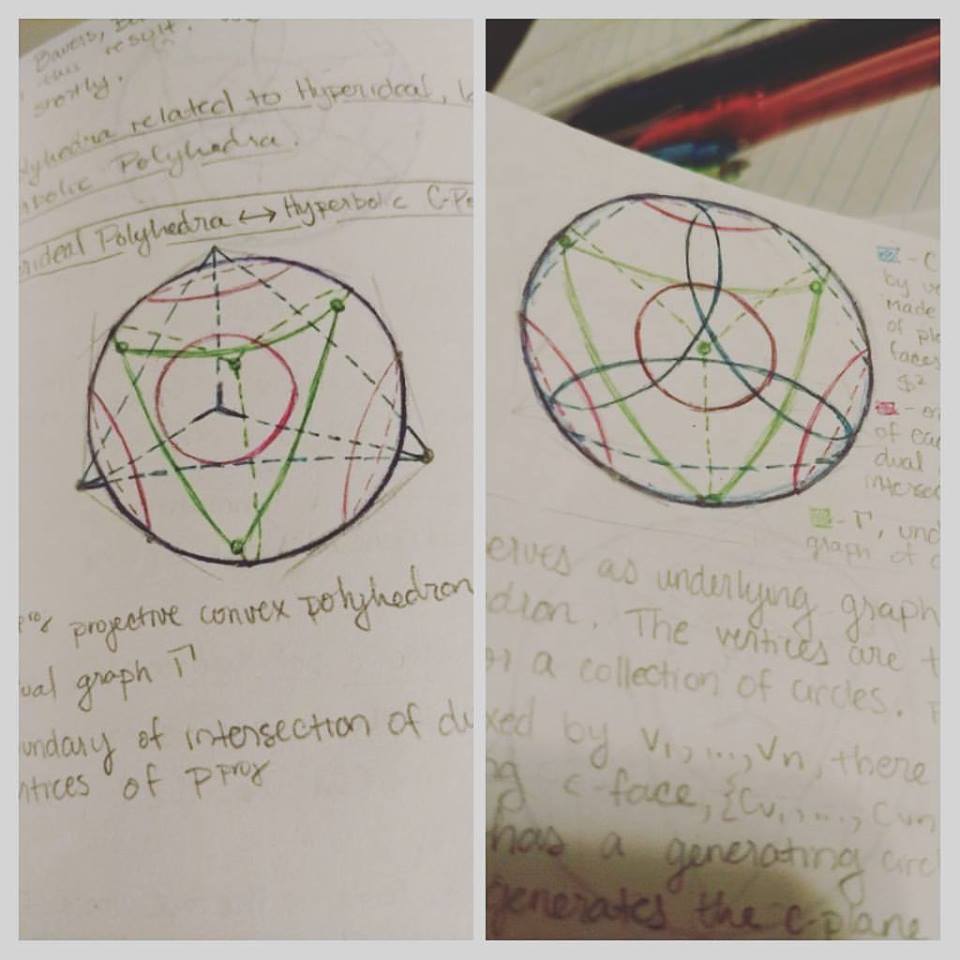 Bavers,
result.
shortly.
lyhedra related to Hyperideal,
bolic Polyhedra.
rideal Polyhedra ↔ Hyperbolic C-Po
projective convex polyhedron
ual graph Γ
undary of intersection of du
rtices of pproj
- C
by ve
made
of pla
faces
S²
- or
of eac
dual
interse
- Γ, und
graph of c
erves as underlying graph
dron. The vertices are t
or a collection of circles.
xed by V₁,...,Vn, there
ng c-face, {Cv₁,..., Cvn
has a generating circ
generates the c-plane